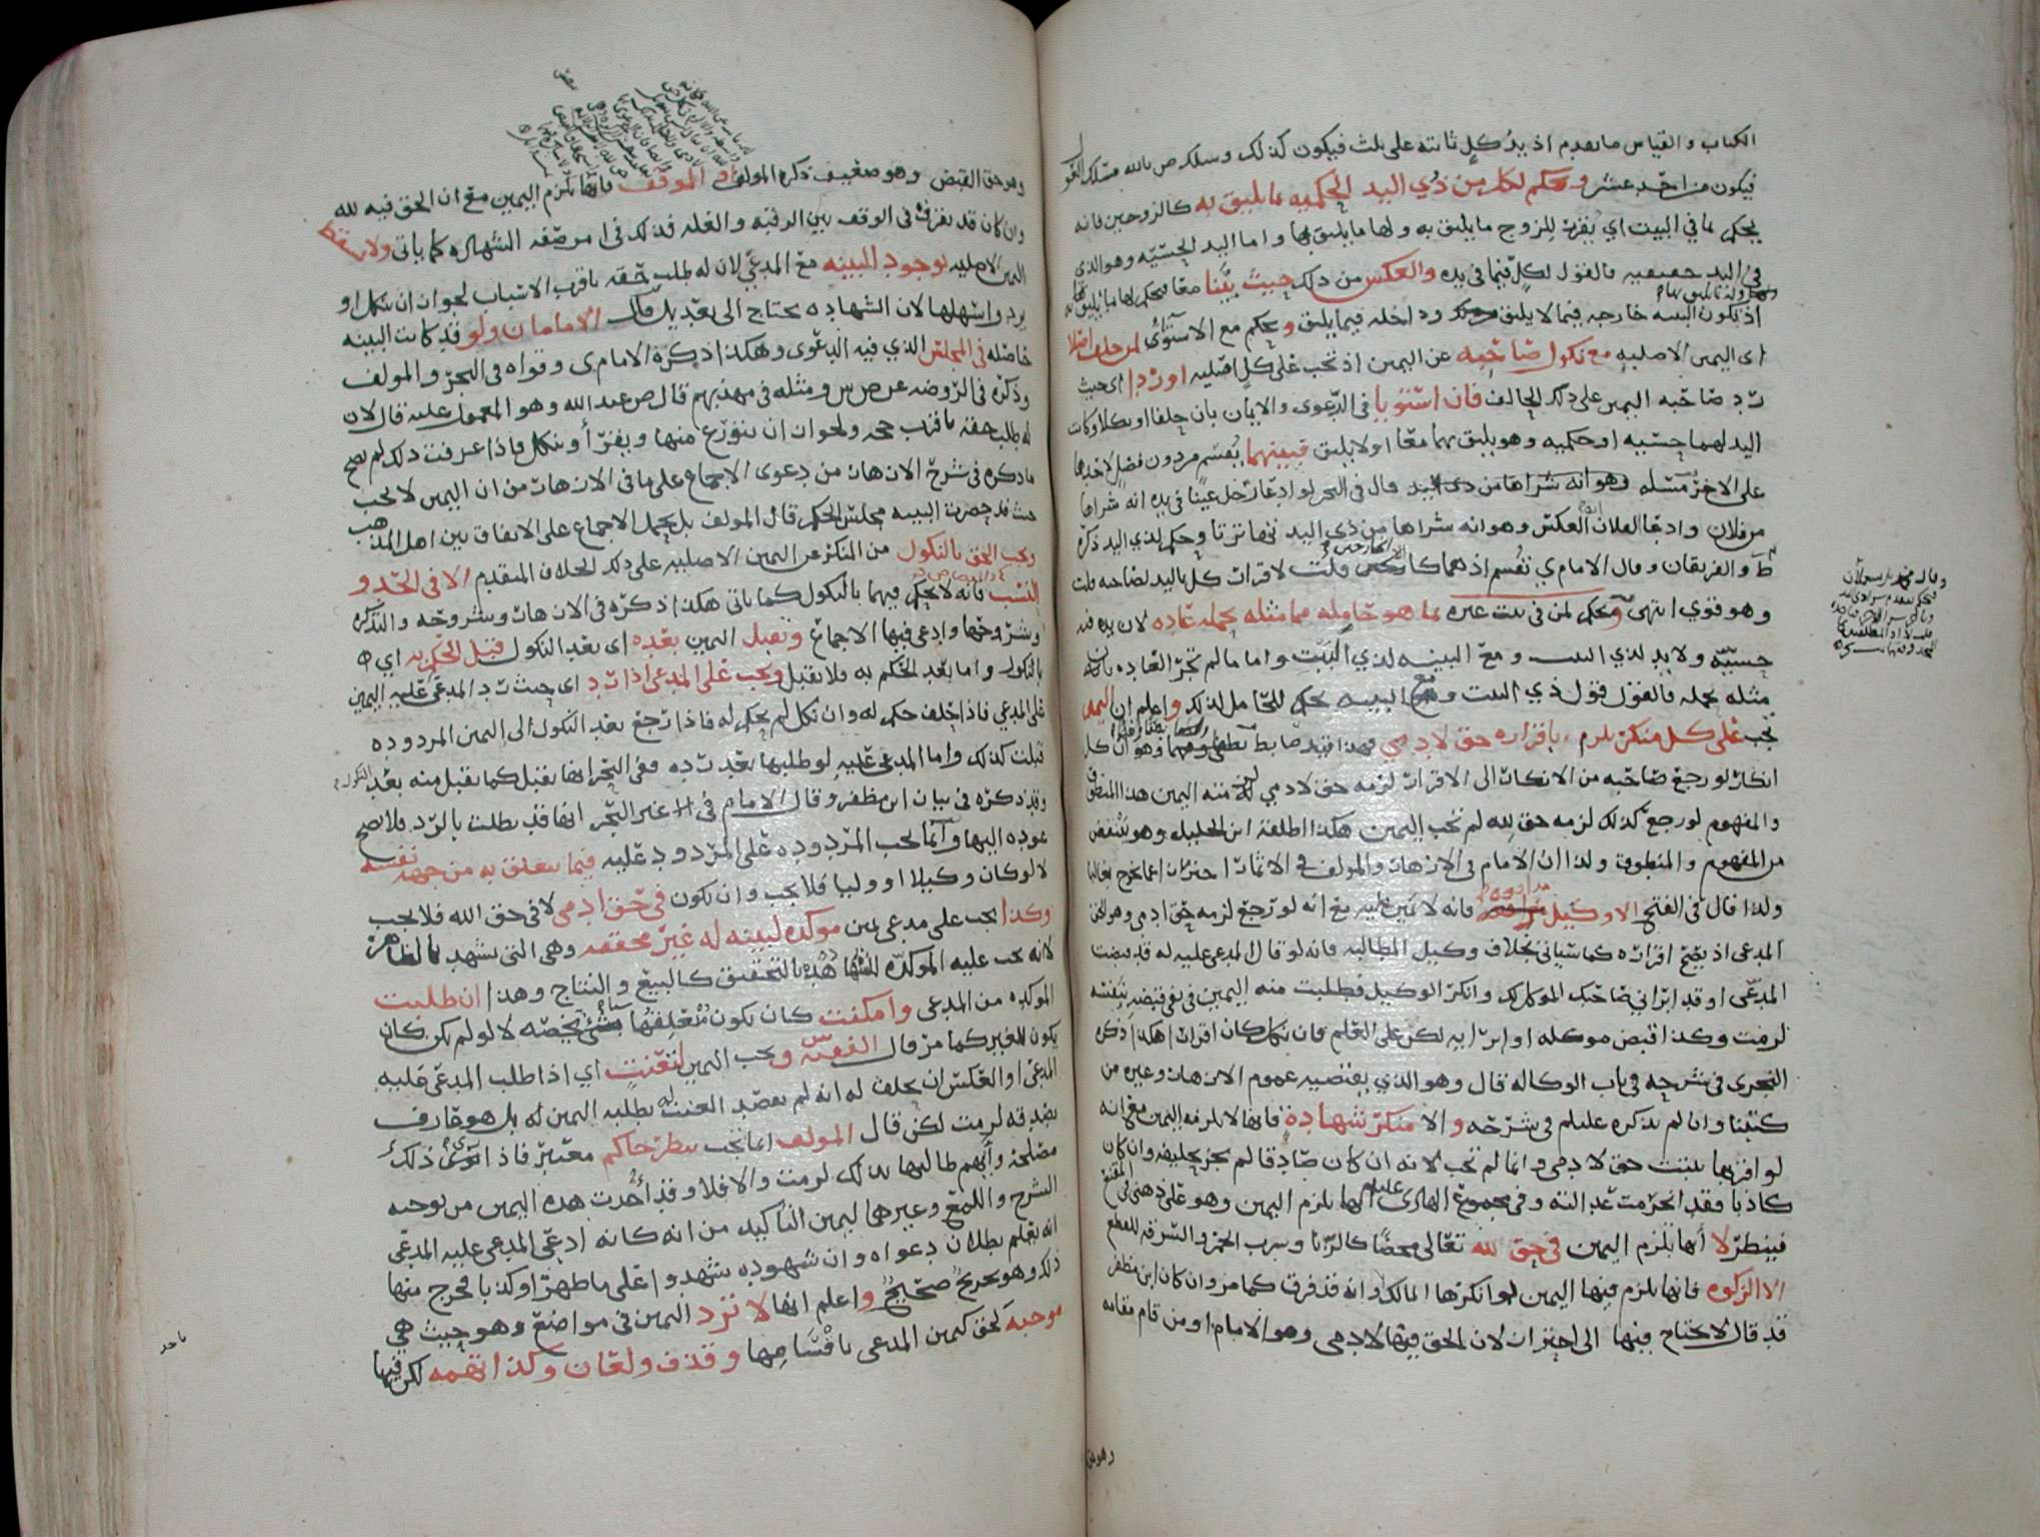 الكتاب والقياس ما تقدم اذ يد كل ثابته على ثلث فيكون كذلك وسلك ص بالله مسلك
فيكون من احد عشر ويحكم لكل من ذوي اليد الحكميه بما يليق به كالزوجين فانه
يحكم بما في البيت اي يقرر للزوج ما يليق به ولها ما يليق بها واما اليد الحسيه وهو الذي
في اليد حقيقيه فالقول لكل فيما في يده والعكس من ذلك حيث بينا معا فيحكم لها بما يليق به
اذ تكون البينه خارجه فيما لا يليق وداخله فيما يليق ويحكم مع الاستوى لمن حلف اصلا
اي اليمين الاصليه مع نكول صاحبه عن اليمين اذ تجب على كل اصليه او ردا اي حيث
رد صاحبه اليمين على ذلك الحالف فان استويا في الدعوى والايمان بان حلفا او نكلا وكانت
اليد لهما حسيه او حكميه وهو يليق بهما معا او لا يليق فبينهما يقسم من دون فضل لاحدهما
على الاخر مسله قال في البحر لو ادعا رجل عينا في يده انه شراها
من فلان وادعا الفلان العكس وهو انه شراها من ذي اليد تهاترتا وحكم لذي اليد ذكره
ط والفريقان وقال الامام ي تقسم اذ هما كالخارجين قلت لاقرار كل باليد لصاحبه قلت
وهو قوي انتهى ويحكم لمن في بيت غيره بما هو حامله مما مثله يحمله عاده لان يده فيه
حسيه ولا يد لذي البيت ومع البينه لذي البيت واما ما لم تجر العاده بان
مثله يحمله فالقول قول ذي البيت ومع البينه يحكم للحامل لذلك واعلم ان اليمين
تجب على كل منكر يلزم باقراره حق لادمي فهذا قيد ضابط وهو ان كل
انكار لو رجع صاحبه من الانكار الى الاقرار لزمه حق لادمي لزمت منه اليمين هذا المنطوق
والمفهوم لو رجع كذلك لزمه حق لله لم تجب اليمين هكذا اطلقه ابن الخليل وهو ينتقض
من المفهوم والمنطوق ولذا ان الامام في الازهار والمولف في الاثمار احترزا عما يخرج فقالا
ولذا قال في الفتح الا وكيل مدافعه فانه لا يمين عليه مع انه لو رجع لزمه حق ادمي وهو الحق
المدعى اذ يصح اقراره كما سياتي بخلاف وكيل المطالبه فانه لو قال المدعى عليه له قد قبضت
المدعى او قد ابراني صاحبك الموكل لك وانكر الوكيل فطلبت منه اليمين في نفي قبضه بنفسه
لزمت وكذا قبض موكله او ابرا به لكن على العلم فان نكل كان اقرارا هكذا ذكره
النجري في شرحه في باب الوكاله قال وهو الذي يقتضيه عموم الازهار وغيره من
كتبنا وان لم يذكره عليلم في شرحه والا منكر شهادة فانها لا تلزمه اليمين مع انه
لو اقر بها يثبت حق لادمي وانما لم تجب لانه ان كان صادقا لم يجز تحليفه وان كان
كاذبا فقد انخرمت عدالته وفي مجموع الهادي عليلم انها تلزم اليمين وهو على ذهني في المقنع
فينظر لا انها تلزم اليمين في حق لله تعالى محضا كالزنا وشرب الخمر والسرقه للقطع
الا الزكوه فانها يلزم فيها اليمين لو انكرها المالك وانه قد فرق كما مر وان كان ابن مظفر
قد قال لا يحتاج فيها الى احتراز لان الحق فيها لادمي وهو الامام او من قام مقامه
وهو حق القبض وهو ضعيف ذكره المولف او الموقف فانها تلزم اليمين مع ان الحق فيه لله
وان كان قد يفرق في الوقف بين الرقبه والغله فذلك في امر صفه الشهاده كما ياتي ولا تسقط
اليمين الاصليه بوجود البينه مع المدعي لان له طلب حقه باقرب الاسباب لجواز ان ينكل او
يرد واسهلها لان الشهاده يحتاج الى تعديل قال الامامان ولو قد كانت البينه
حاضله في المجلس الذي فيه الدعوى وهكذا ذكره الامام ي وقواه في البحر والمولف
وذكره في الروضه عن ص س ومثله في مهذبهم قال ص عبد الله وهو المعمول عليه قال لان
له طلب حقه باقرب حجه ولجواز ان يتورع منها ويقر او ينكل فاذا عرفت ذلك لم يصح
ما ذكره في شرح الازهار من دعوى الاجماع على ما في الازهار من ان اليمين لا تجب
حيث قد حضرت البينه مجلس الحكم قال المولف بل يحمل الاجماع على الاتفاق بين اهل المذهب
ويجب الحق بالنكول من المنكر عن اليمين الاصليه على ذلك الخلاف المتقدم الا في الحد و
النسب فانه لا يحكم فيهما بالنكول كما ياتي هكذا ذكره في الازهار وشروحه والتذكره
وشروحها وادعي فيها الاجماع وتقبل اليمين بعده اي بعد النكول قبل الحكم به اي
بالنكول واما بعد الحكم به فلا تقبل ويجب على المدعي اذا رد اي حيث رد المدعى عليه اليمين
على المدعي فاذا حلف حكم له وان نكل لم يحكم له فاذا رجع بعد النكول الى اليمين المردوده
قبلت كذلك واما المدعى عليه لو طلبها بعد رده ففي البحر انها تقبل كما تقبل منه بعد النكول
وقد ذكره في بيان ابن مظفر وقال الامام في غير البحر انها قد بطلت بالرد فلا يصح
عوده اليها وانما تجب المردوده على المردود عليه فيما يتعلق به من جهة نفسه
لا لو كان وكيلا او وليا فلا تجب وان تكون في حق ادمي لا في حق الله فلا تجب
وكذا تجب على مدعي يمين موكده لبينه له غير محققه وهي التي تشهد بالظاهر
لانه تجب عليه الموكده بالتحقيق كالبيع والنتاج وهذا ان طلبت
الموكده من المدعي وامكنت كان تكون متعلقها شيء يخصه لا لو لم يكن كان
يكون للغير كما مر قال الفقيه س ويجب اليمين لتعنت اي اذا طلب المدعى عليه
المدعي او العكس ان يحلف له انه لم يقصد العنت له بطلبه اليمين له بل هو عارف
بصدقه لزمت لكن قال المولف انما تجب بنظر حاكم معتبر فاذا قوي ذلك
مصلحة وايهم طالبها لذلك لزمت والا فلا وقد اخذت هذه اليمين من توجيه
الشرح واللمع وغيرهما ليمين التاكيد من انه كانه ادعى المدعى عليه المدعي
انه يعلم بطلان دعواه وان شهوده شهدوا على ما ظهر او كذبا فخرج منها
ذلك وهو تخريج صحيح واعلم انها لا ترد اليمين في مواضع وهو حيث هي
موجبه لحق كيمين المدعي باقسامها وقذف ولعان وكذا تهمه لكن فيها